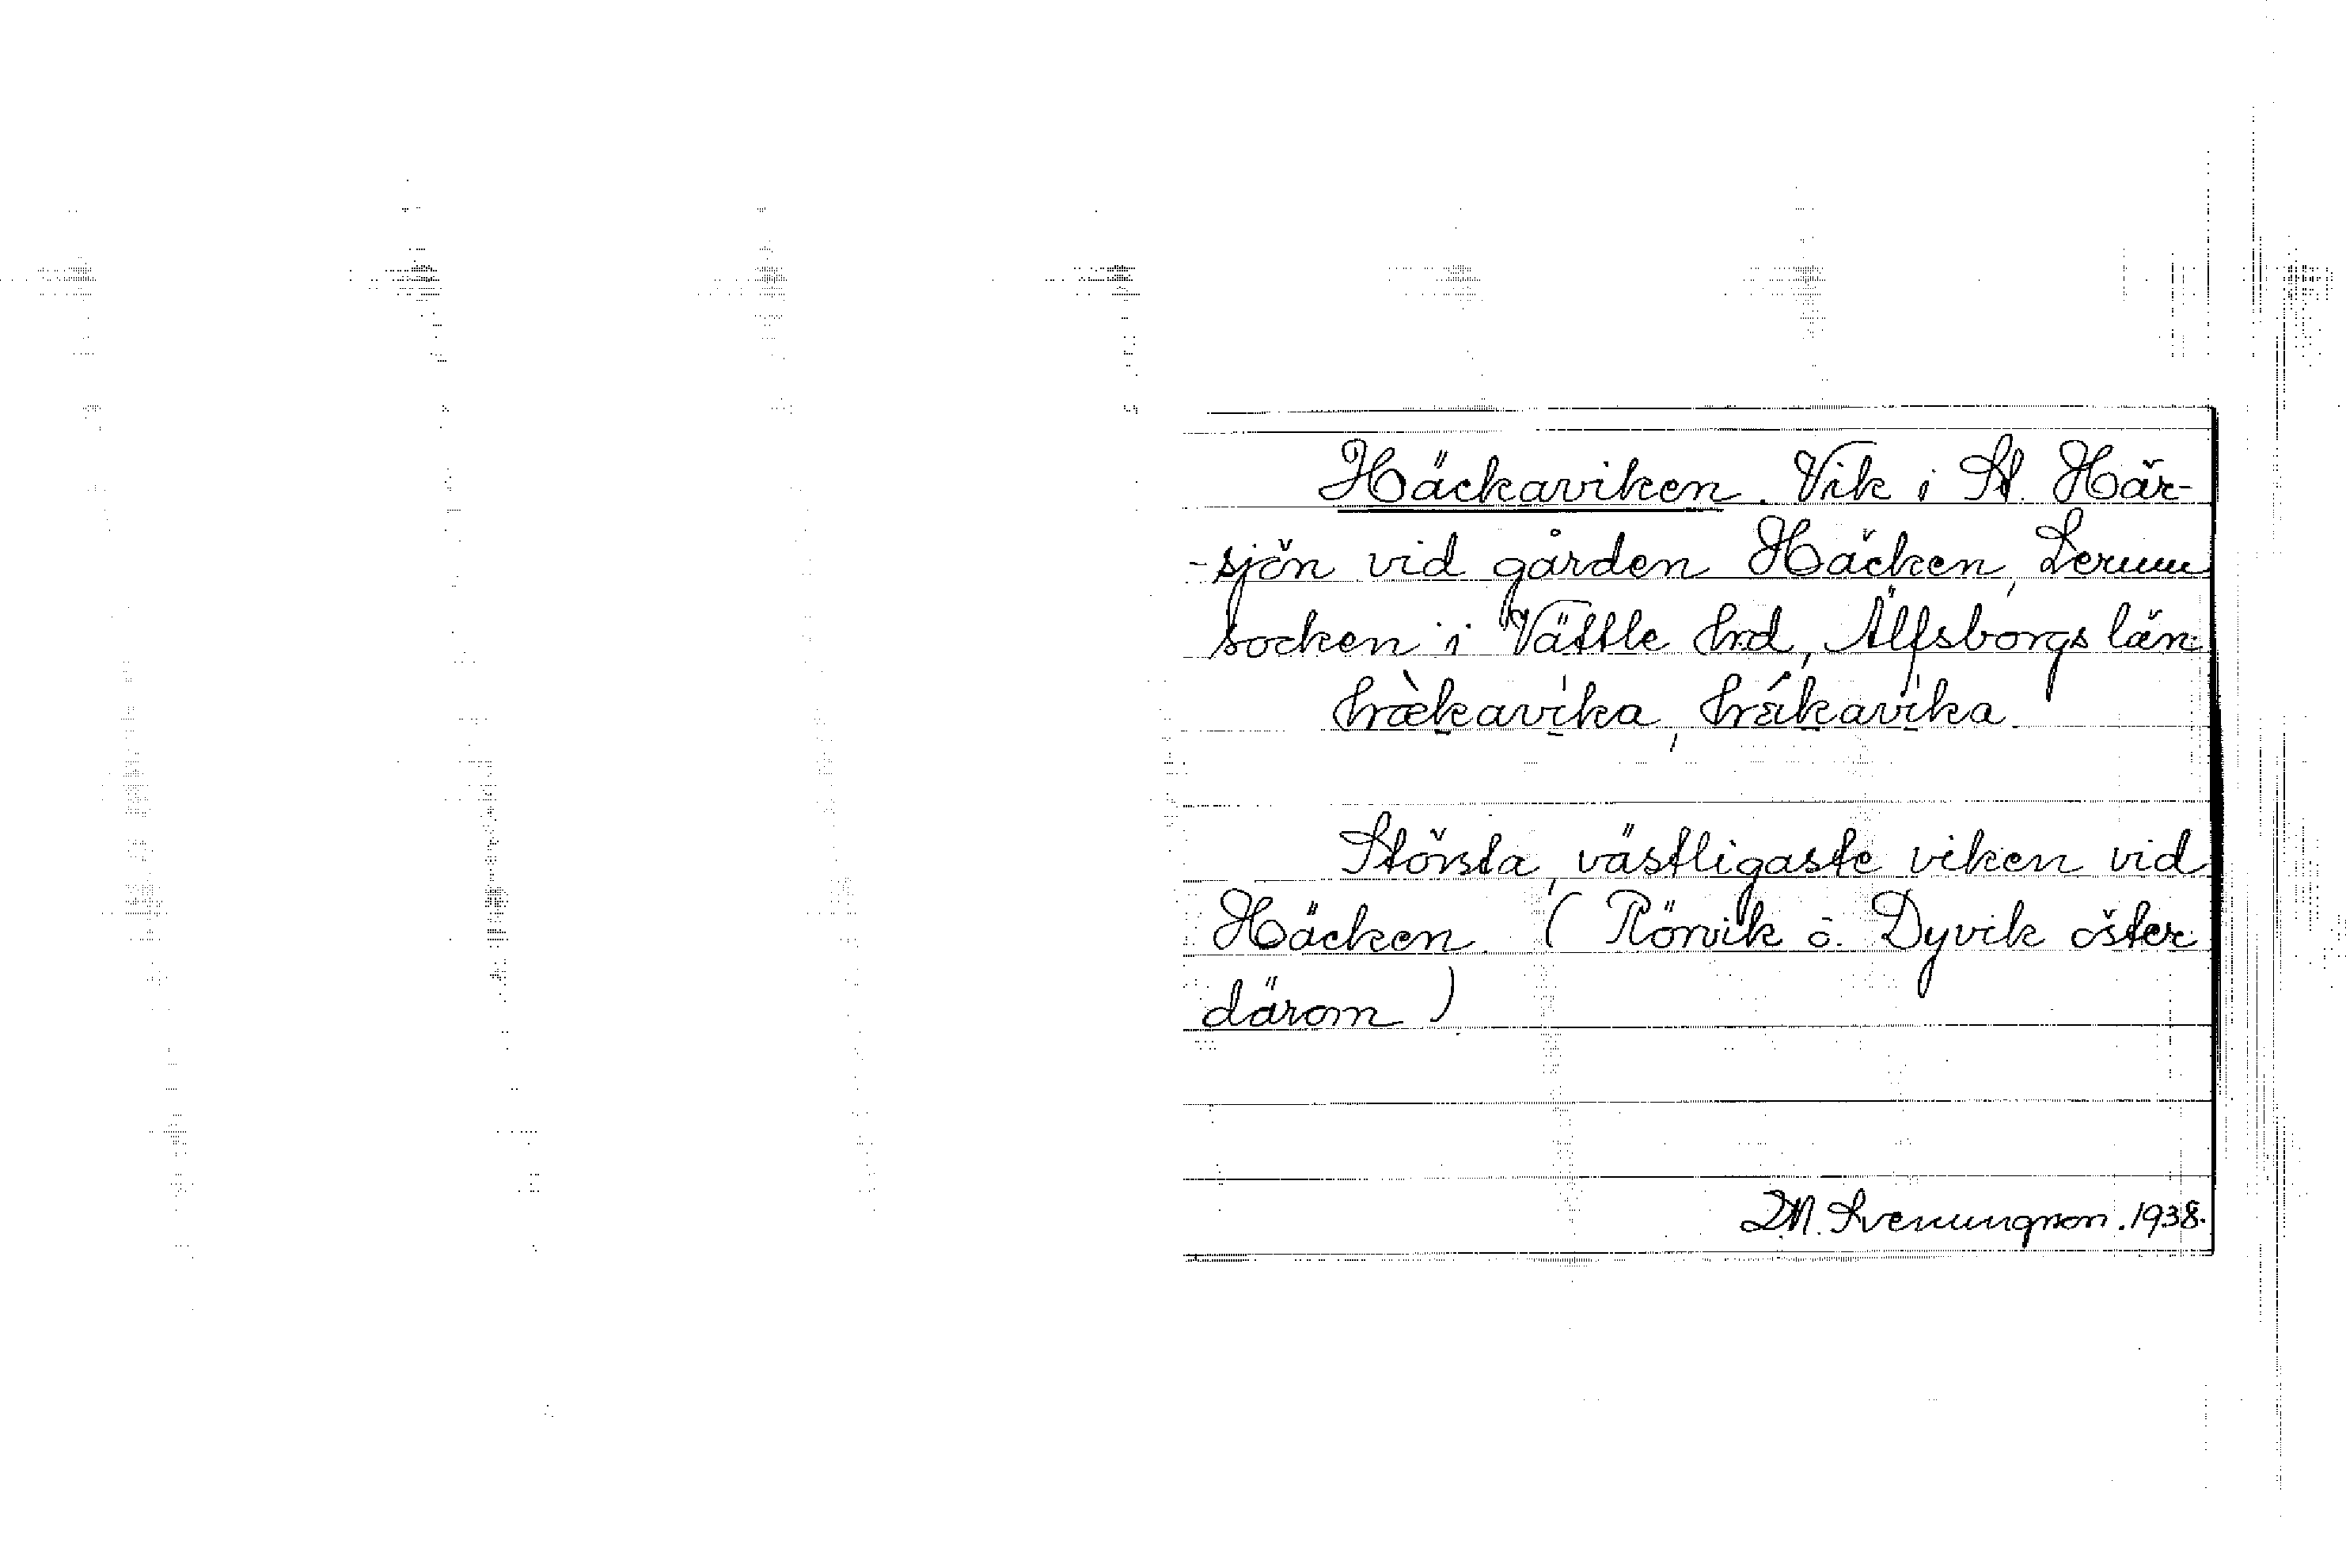 Häckaviken. Vik i St. Här-
-sjön vid gården Häcken, Lerum
socken i Vättle hrd, Älfsborgs län.
hækavika, hrákavika.
Största, västligaste viken vid
Häcken. (Rörvik o. Dyvik öster
därom).
D.M. Svenungson. 1938.